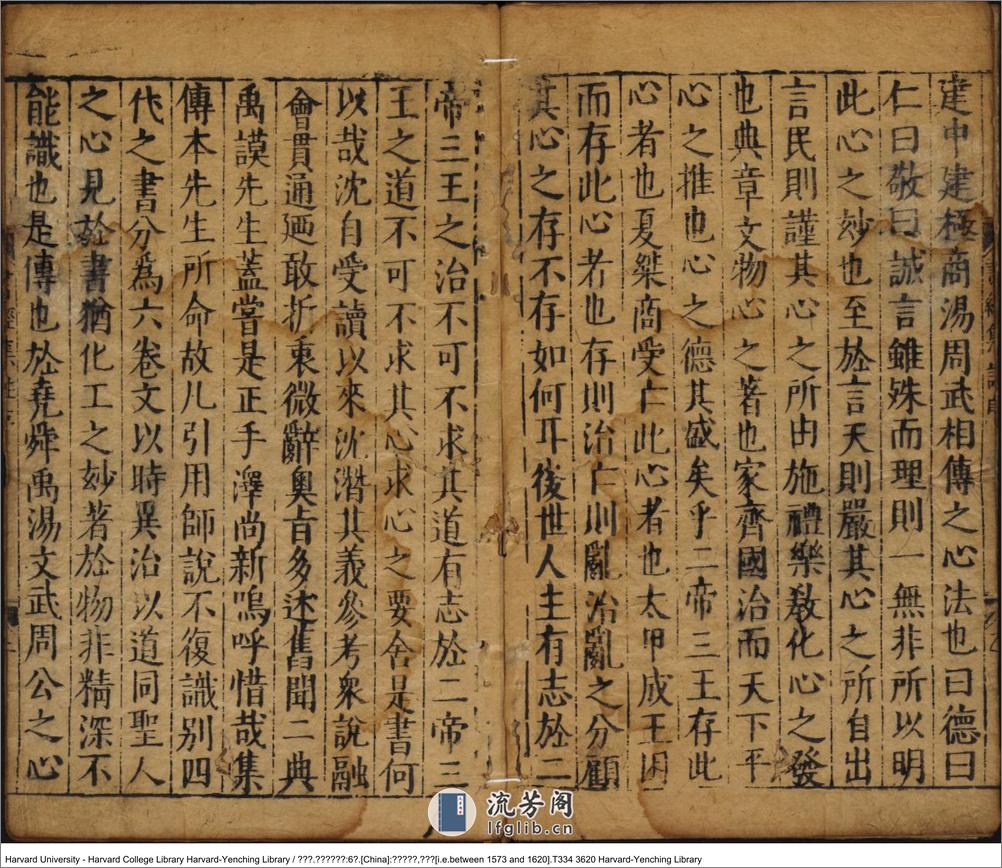 建中建極商湯周武相傳之心法也曰德曰
仁曰敬曰誠言雖殊而理則一無非所以明
此心之妙也至於言天則嚴其心之所自出
言民則謹其心之所由施禮樂教化心之發
也典章文物心之著也家齊國治而天下平
心之推也心之德其盛矣乎二帝三王存此
心者也夏桀商受亡此心者也太甲成王困
而存此心者也存則治亡則亂治亂之分顧
其心之存不存如何耳後世人主有志於二
帝三王之治不可不求其道有志於二帝三
王之道不可不求其心求心之要舍是書何
以哉沈自受讀以來沈潛其義參考衆說融
會貫通廼敢折衷微辭奥旨多述舊聞二典
禹謨先生蓋嘗是正手澤尚新嗚呼惜哉集
傳本先生所命故凡引用師說不復識别四
代之書分爲六卷文以時異治以道同聖人
之心見於書猶化工之妙著於物非精深不
能識也是傳也於堯舜禹湯文武周公之心
流芳阁
lfglib.cn
Harvard University - Harvard College Library Harvard-Yenching Library / ???.??????:6?.[China]:?????,???[i.e.between 1573 and 1620].T334 3620 Harvard-Yenching Library